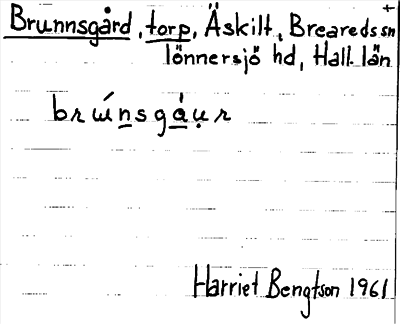 Brunnsgård, torp, Äskilt, Breareds sn
Tönnersjö hd, Hall. län
brẃn̲sgá̲u̟r
Harriet Bengtson 1961